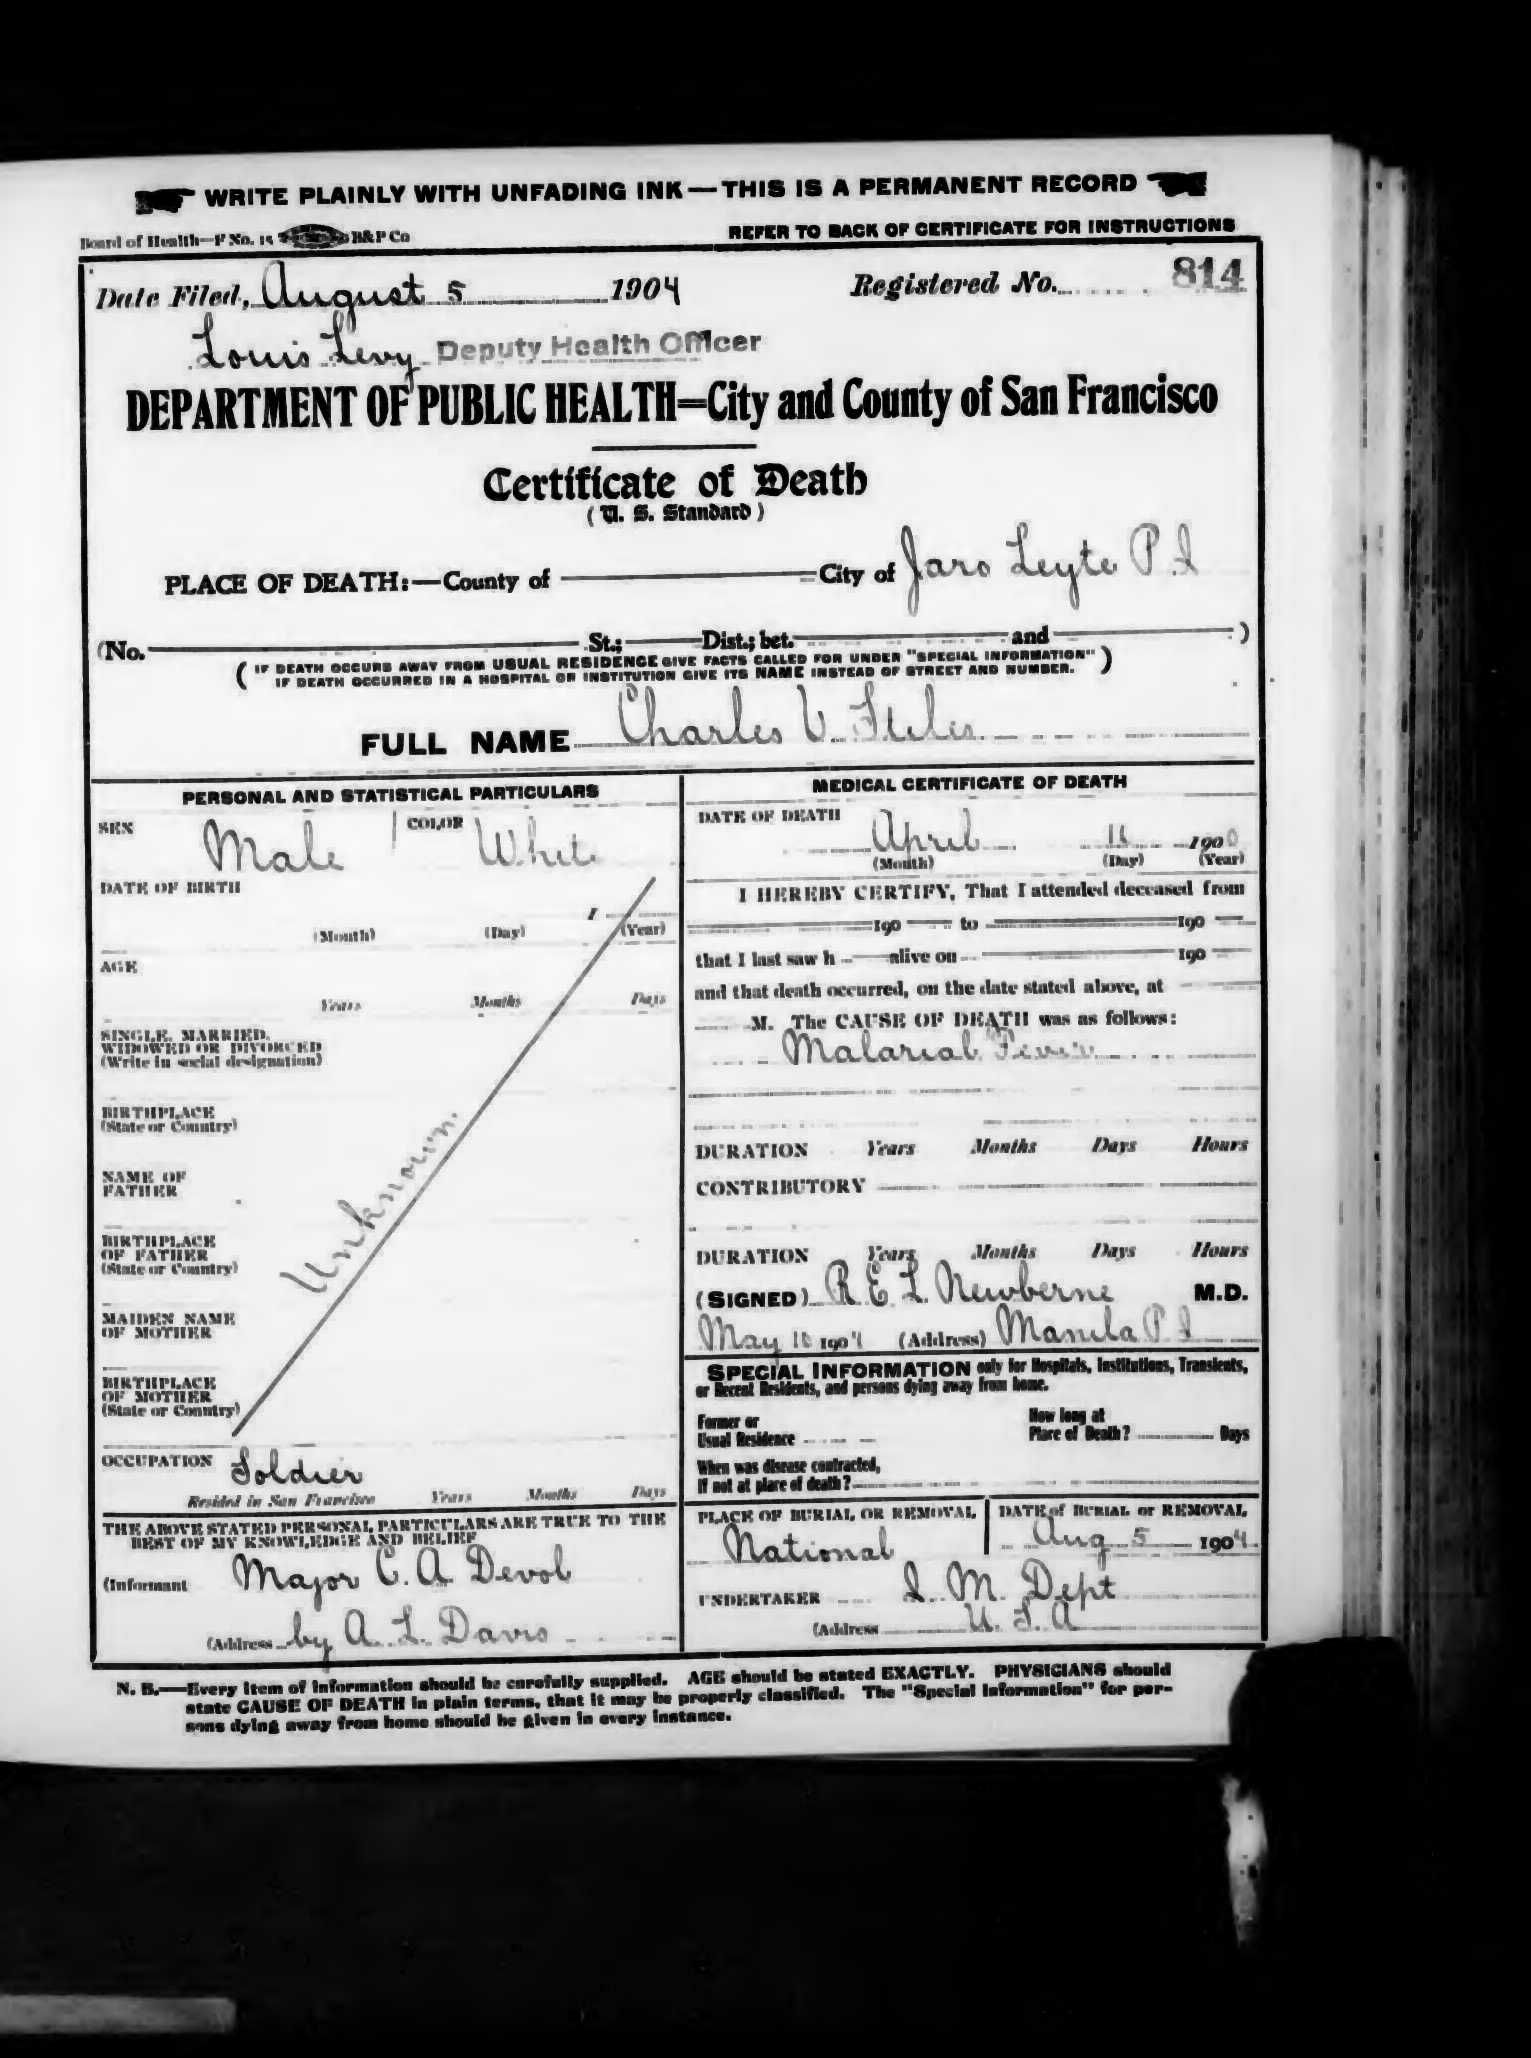 WRITE PLAINLY WITH UNFADING INK—THIS IS A PERMANENT RECORD
Board of Health—F No. 15 B&P Co
REFER TO BACK OF CERTIFICATE FOR INSTRUCTIONS
Date Filed, August 5 1904 Registered No. 814
Louis Levy Deputy Health Officer
DEPARTMENT OF PUBLIC HEALTH=City and County of San Francisco
Certificate of Death
(U. S. Standard)
PLACE OF DEATH:—County of City of Jaro Leyte P I
(No. St.; Dist.; bet. and )
(IF DEATH OCCURS AWAY FROM USUAL RESIDENCE GIVE FACTS CALLED FOR UNDER "SPECIAL INFORMATION"
IF DEATH OCCURRED IN A HOSPITAL OR INSTITUTION GIVE ITS NAME INSTEAD OF STREET AND NUMBER.)
FULL NAME Charles V.
PERSONAL AND STATISTICAL PARTICULARS
SEX Male COLOR White
DATE OF BIRTH
1
(Month) (Day) (Year)
AGE
Years Months Days
SINGLE, MARRIED,
WIDOWED OR DIVORCED
(Write in social designation)
BIRTHPLACE
(State or Country)
Unknown.
NAME OF
FATHER
BIRTHPLACE
OF FATHER
(State or Country)
MAIDEN NAME
OF MOTHER
BIRTHPLACE
OF MOTHER
(State or Country)
OCCUPATION Soldier
Resided in San Francisco Years Months Days
THE ABOVE STATED PERSONAL PARTICULARS ARE TRUE TO THE
BEST OF MY KNOWLEDGE AND BELIEF
(Informant Major C. A. Devol
(Address by A. L. Davis
MEDICAL CERTIFICATE OF DEATH
DATE OF DEATH
April 1900
(Month) (Day) (Year)
I HEREBY CERTIFY, That I attended deceased from
190 to 190
that I last saw h alive on 190
and that death occurred, on the date stated above, at
M. The CAUSE OF DEATH was as follows:
Malarial Fever
DURATION Years Months Days Hours
CONTRIBUTORY
DURATION Years Months Days Hours
(SIGNED) R. E. L. Newberne M.D.
May 10 1904 (Address) Manila P I
SPECIAL INFORMATION only for Hospitals, Institutions, Transients,
or Recent Residents, and persons dying away from home.
Former or
Usual Residence
How long at
Place of Death? Days
When was disease contracted,
If not at place of death?
PLACE OF BURIAL OR REMOVAL
National
DATE of BURIAL or REMOVAL
Aug 5 1904
UNDERTAKER Q. M. Dept
(Address U. S. A
N. B.—Every item of information should be carefully supplied. AGE should be stated EXACTLY. PHYSICIANS should
state CAUSE OF DEATH in plain terms, that it may be properly classified. The "Special Information" for per-
sons dying away from home should be given in every instance.